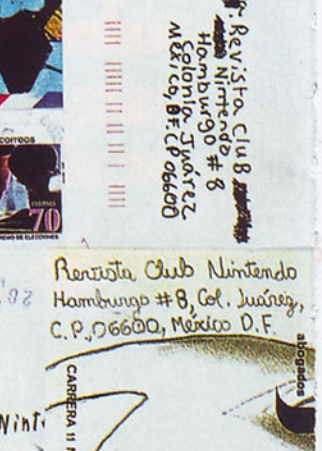 Revista Club
Nintendo
Hamburgo # 8
Colonia Juárez
México, D.F. C.P 06600
correos
70
Revista Club Nintendo
Hamburgo #8, Col. Juárez,
C.P. 06600, México D.F.
abogados
CARRERA 11
Ninte